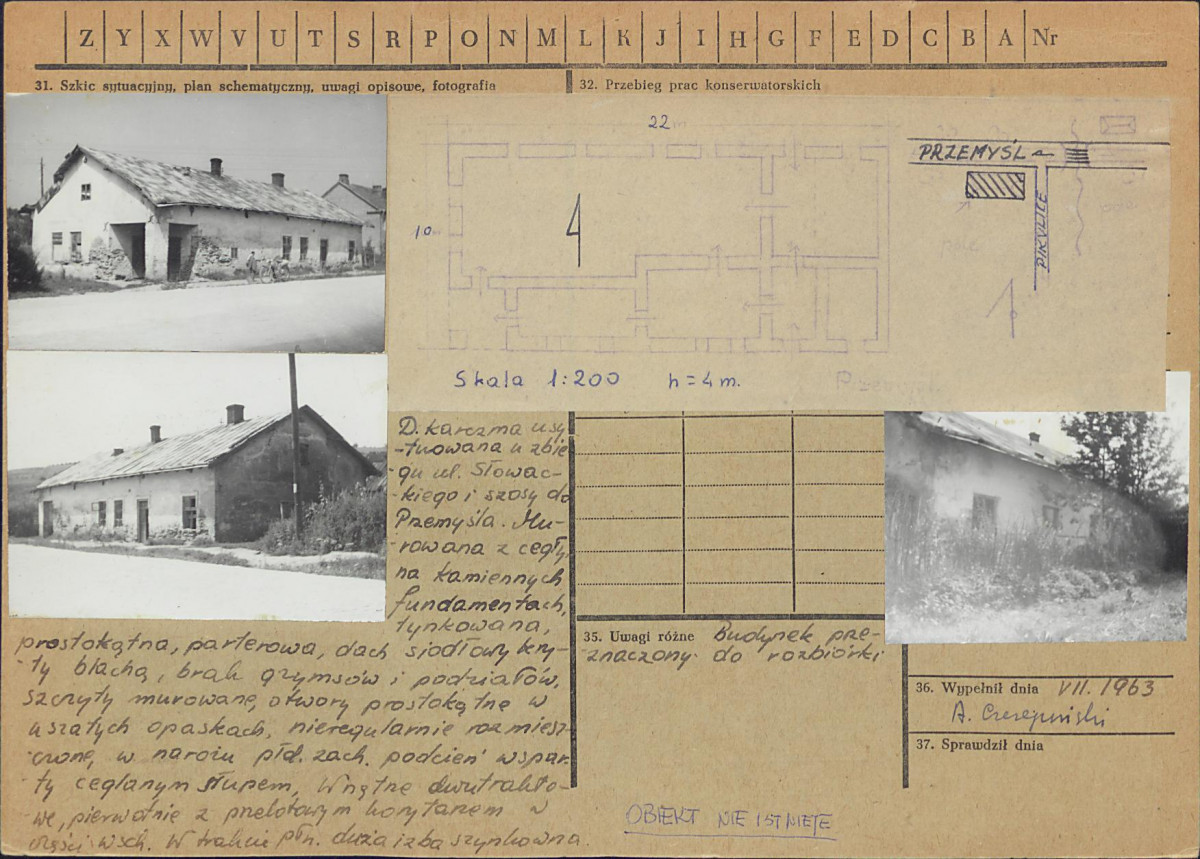 Z Y X W V U T S R P O N M L K J I H G F E D C B A Nr
31. Szkic sytuacyjny, plan schematyczny, uwagi opisowe, fotografia
32. Przebieg prac konserwatorskich
22 m
10 m
PRZEMYŚL
PIKULICE
Skala 1:200 h = 4 m.
D. karczma usy-
-tuowana u zbie
-gu ul. Słowac-
-kiego i szosy do
Przemyśla. Mu-
-rowana z cegły,
na kamiennych
fundamentach,
tynkowana,
prostokątna, parterowa, dach siodłowy kry-
-ty blachą, brak gzymsów i podziałów,
szczyty murowane, otwory prostokątne w
uszatych opaskach, nieregularnie rozmiesz-
-czone, w narożu płd. zach. podcień wspar-
-ty ceglanym słupem, Wnętrze dwutrakto-
-we, pierwotnie z przelotowym korytarzem w
części wsch. W trakcie płn. duża izba szynkowna.
35. Uwagi różne Budynek prze-
-znaczony do rozbiórki
36. Wypełnił dnia VII. 1963
A.
37. Sprawdził dnia
OBIEKT NIE ISTNIEJE